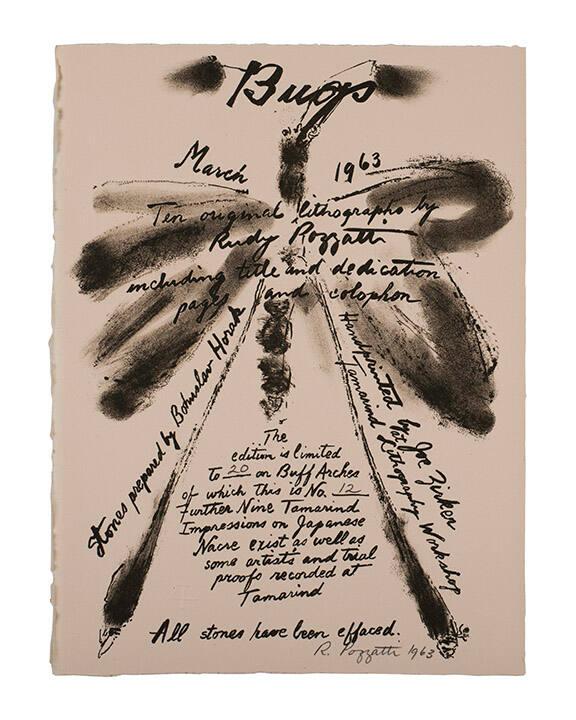 Bugs
March 1963
Ten original lithographs by
Rudy Pozzatti
including title and dedication
pages and colophon
Stones prepared by Bohuslav Horak
Handprinted by Joe Zirker
at Tamarind Lithography Workshop
The
edition is limited
to 20 on Buff Arches
of which this is No. 12
Further Nine Tamarind
Impressions on Japanese
Nacre exist as well as
some artist's and trial
proofs recorded at
Tamarind
All stones have been effaced.
R. Pozzatti 1963